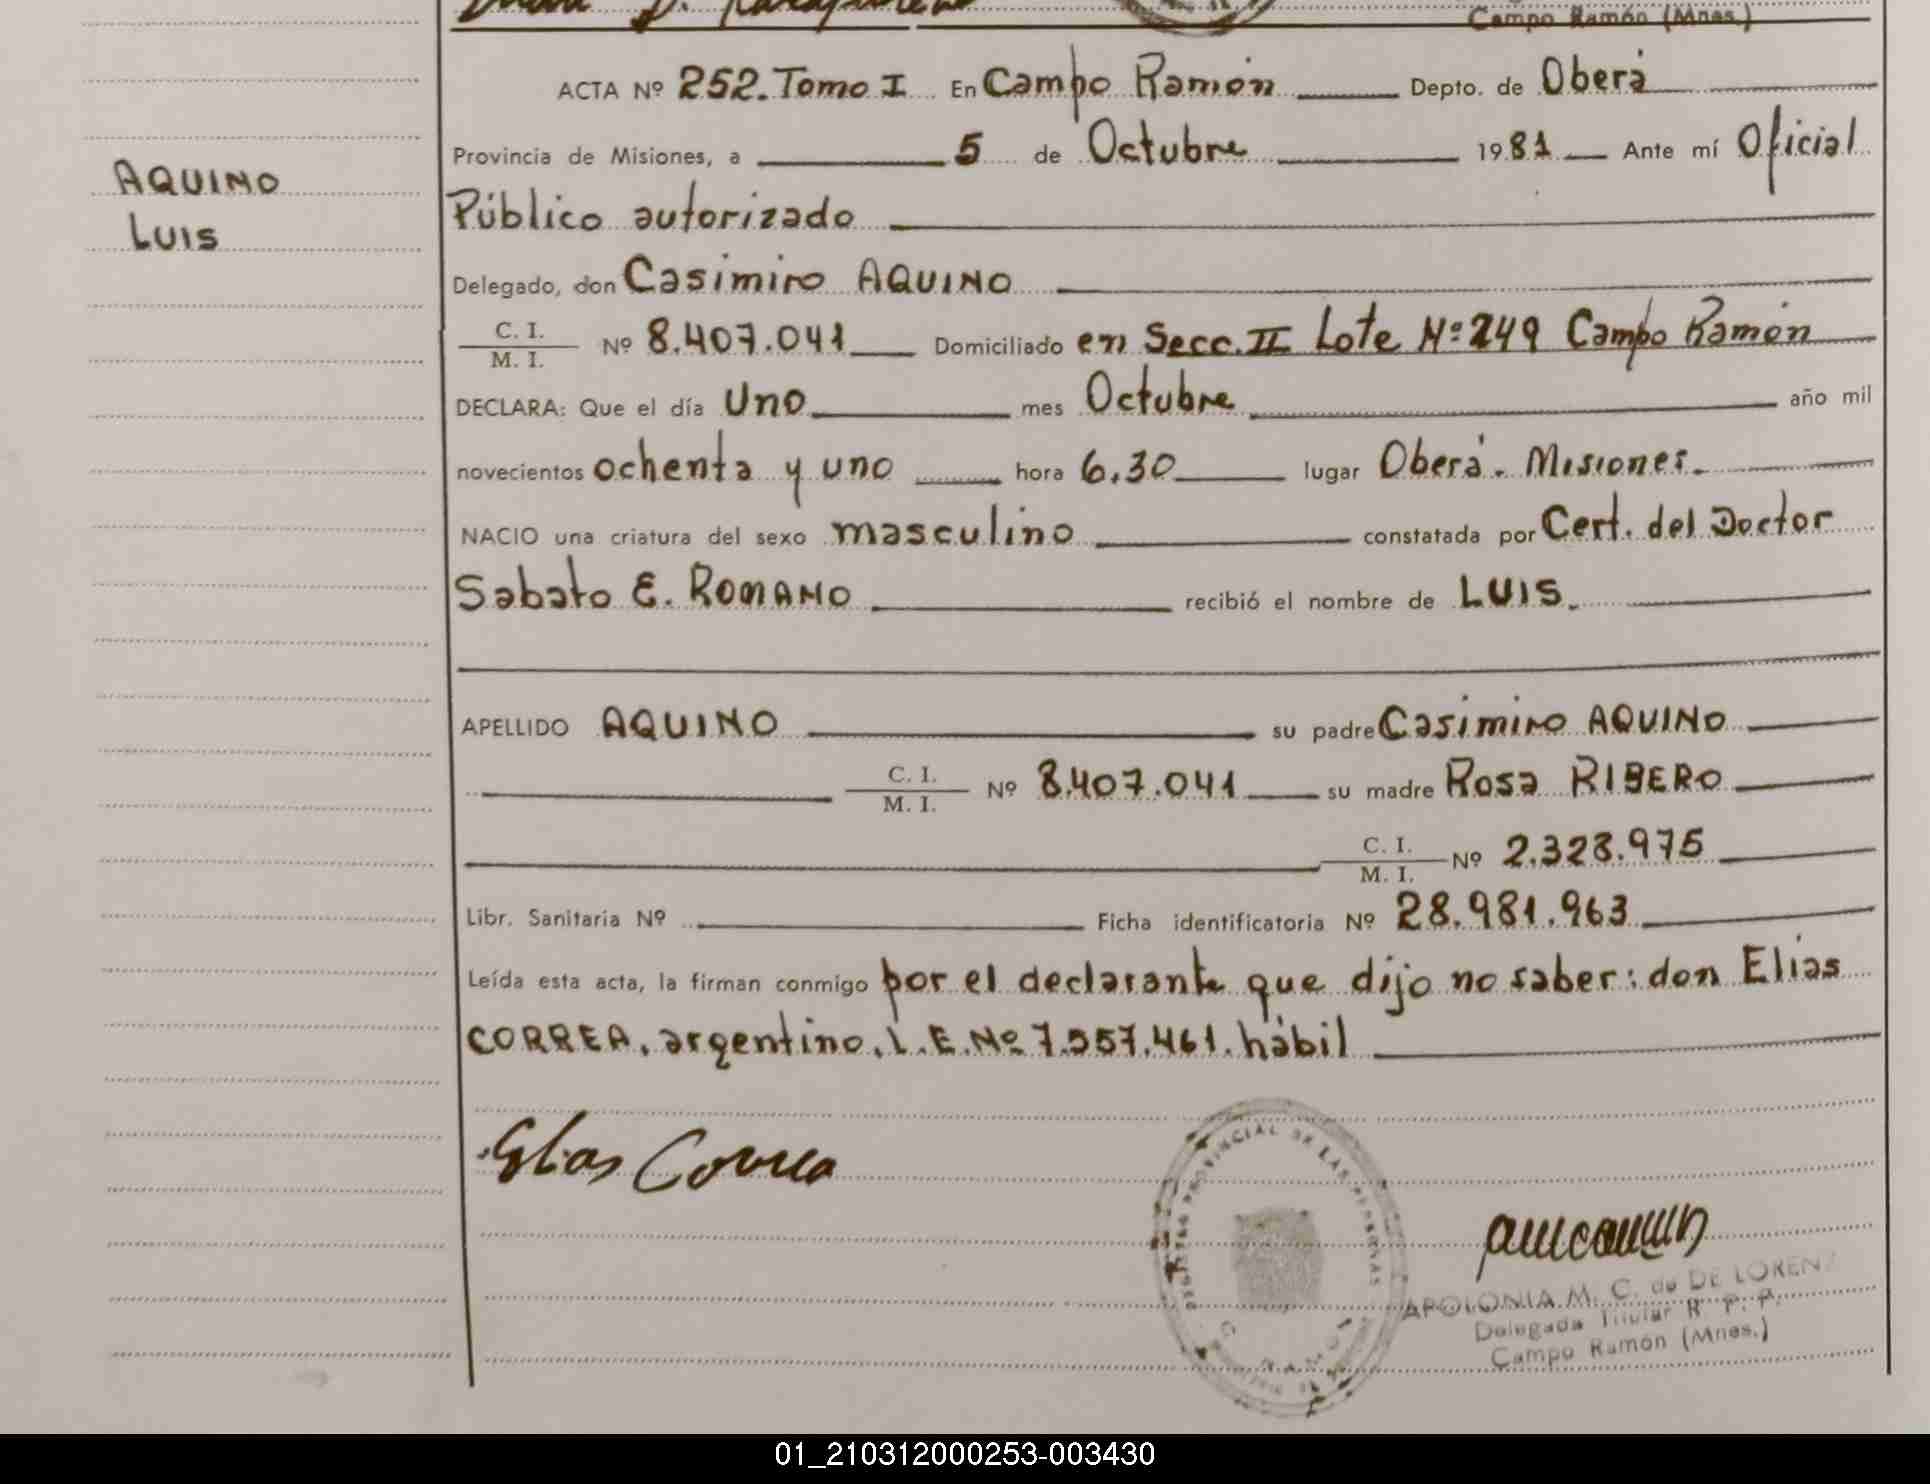 Campo Ramón (Mnes.)
ACTA Nº 252. Tomo I En Campo Ramón Depto. de Oberá
Provincia de Misiones, a 5 de Octubre 1981 Ante mí Oficial
AQUINO
LUIS
Público autorizado
Delegado, don Casimiro AQUINO
C. I.
M. I. Nº 8.407.041 Domiciliado en Secc. II Lote Nº 249 Campo Ramón
DECLARA: Que el día Uno mes Octubre año mil
novecientos ochenta y uno hora 6.30 lugar Oberá. Misiones.
NACIO una criatura del sexo masculino constatada por Cert. del Doctor
Sabato E. ROMANO recibió el nombre de LUIS.
APELLIDO AQUINO su padre Casimiro AQUINO
C. I.
M. I. Nº 8.407.041 su madre Rosa RIBERO
C. I.
M. I. Nº 2.328.975
Libr. Sanitaria Nº Ficha identificatoria Nº 28.981.963
Leída esta acta, la firman conmigo por el declarante que dijo no saber: don Elias
CORREA, argentino, L.E.Nº 7.557.461. hábil
Elias Correa
PROVINCIAL DE LAS PERSONAS
APOLONIA M. C. de DE LORENZ
Delegada Titular R. P. P.
Campo Ramón (Mnes.)
01_210312000253-003430